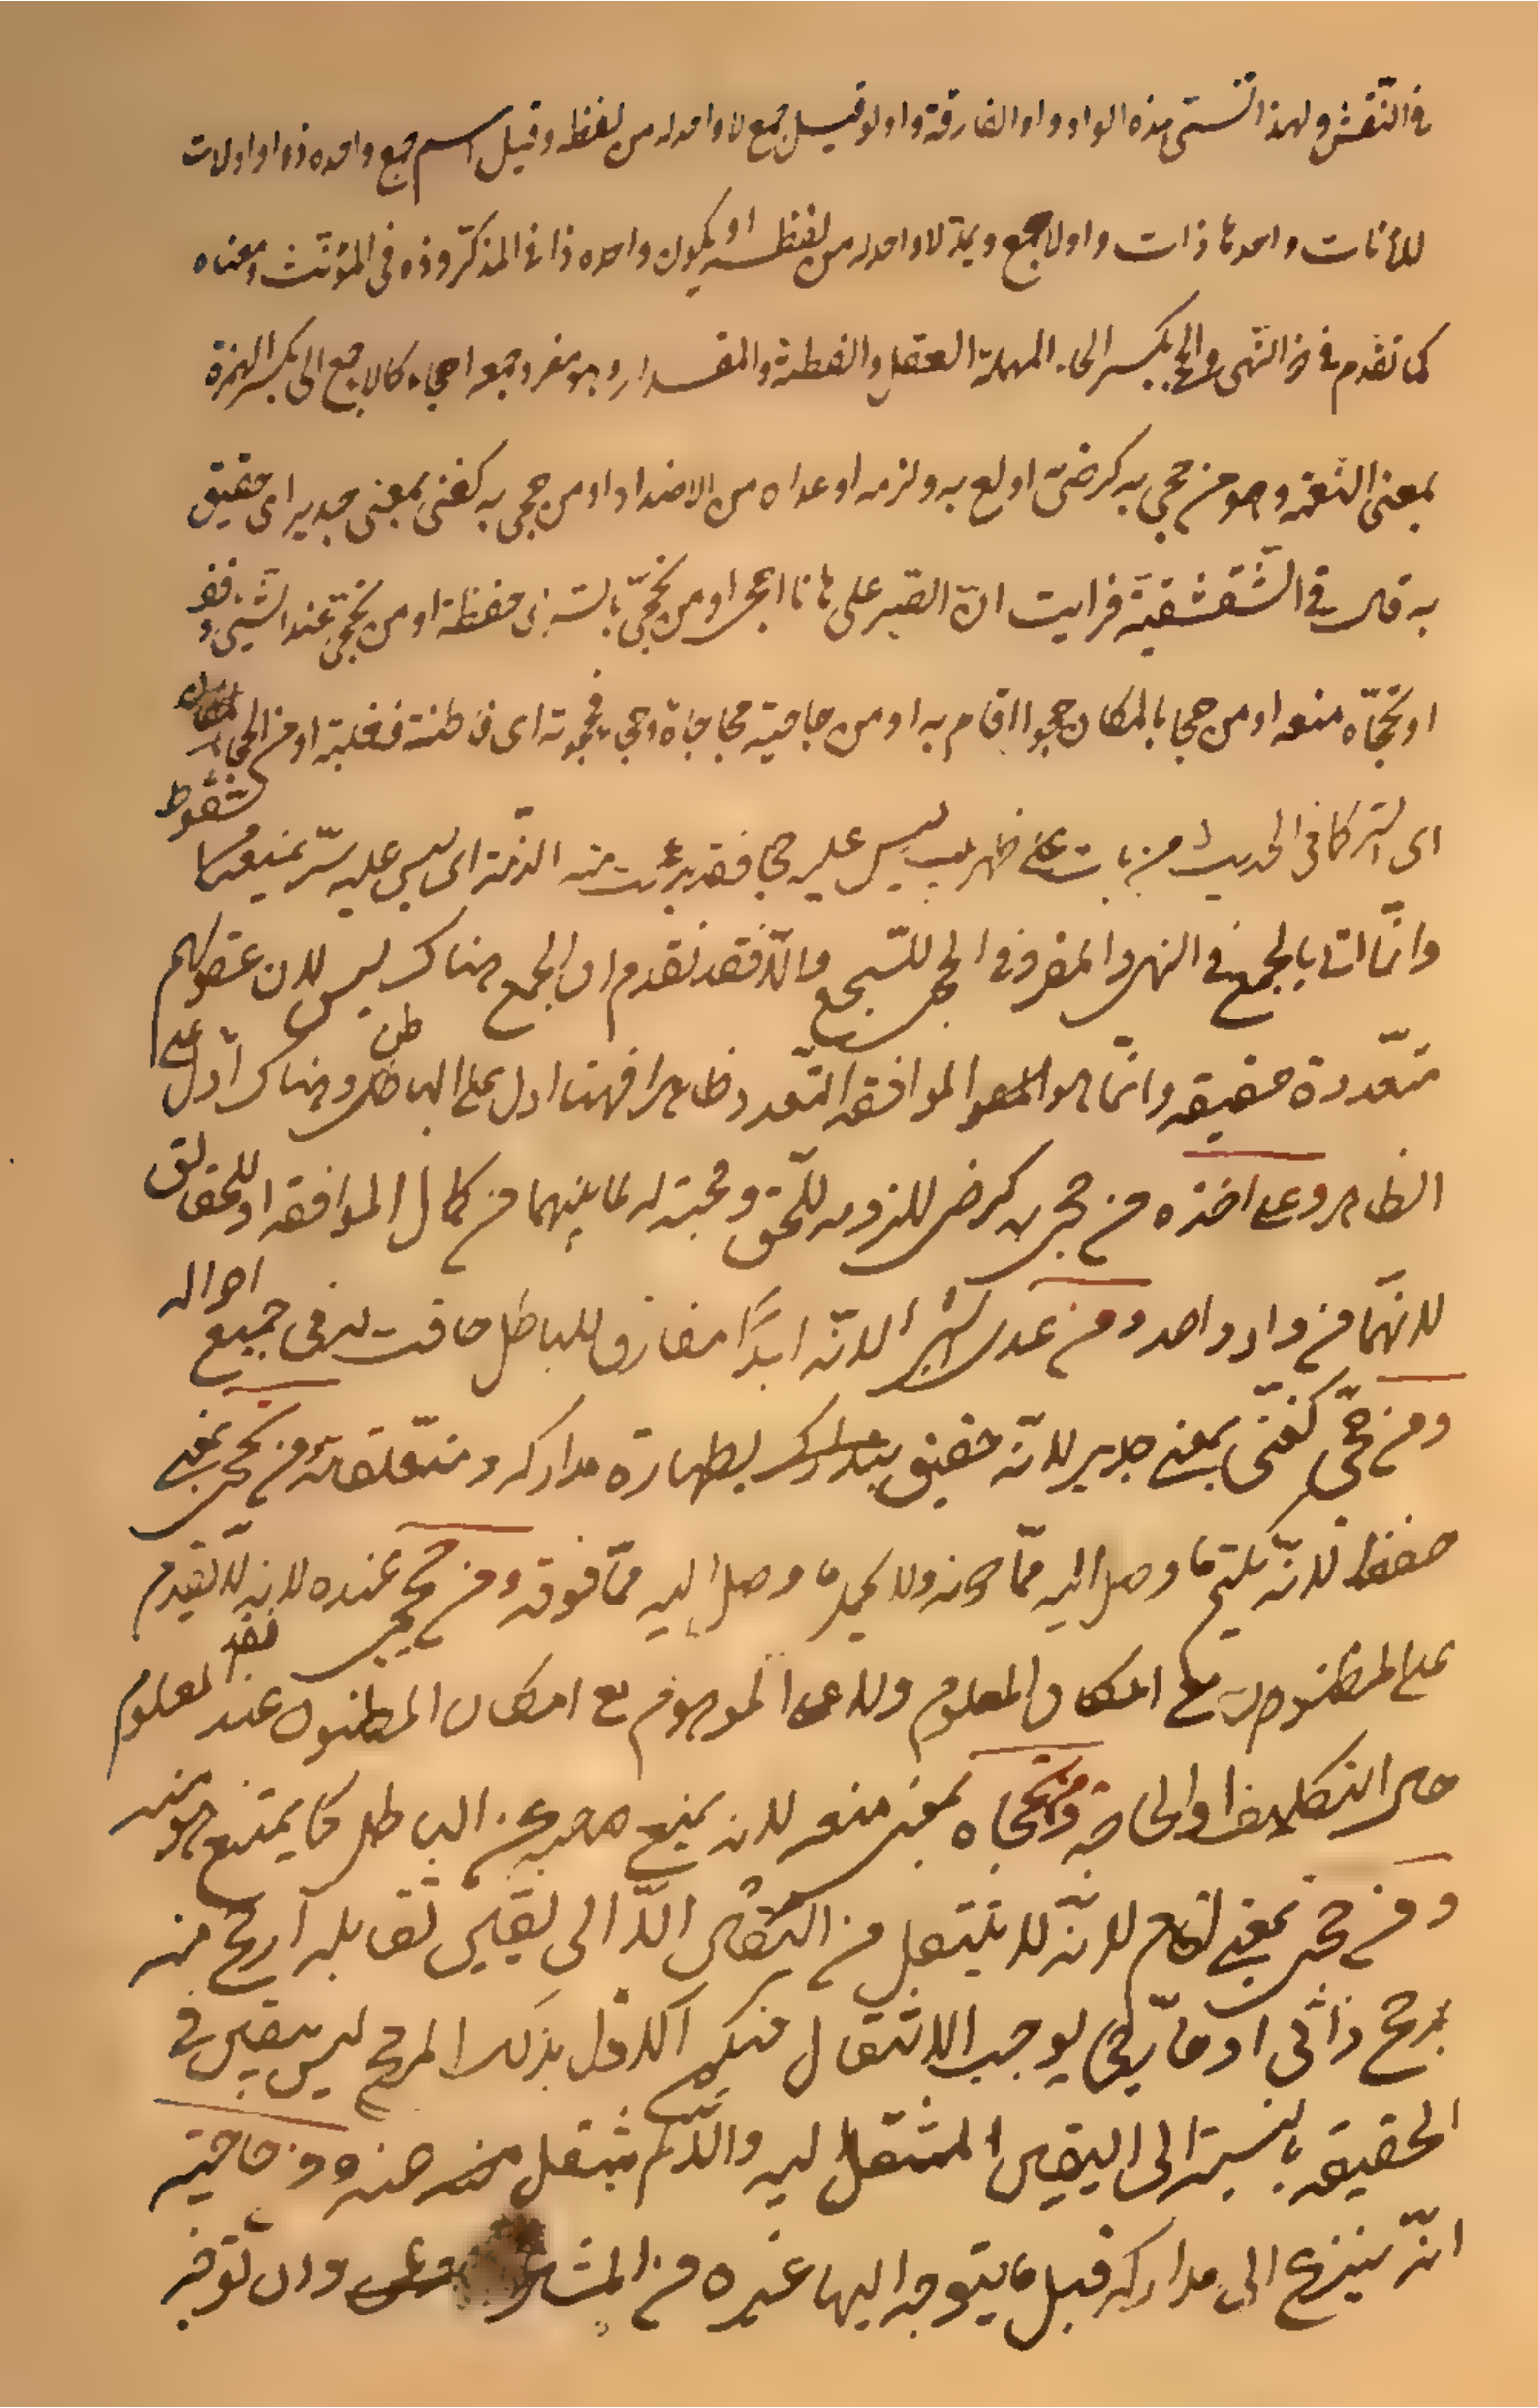 في النّقش ولهذا تسمّى هذه الواو واو الفارقة واولو قيل جمع لا واحد له من لفظه وقيل اسم جمع واحده ذو واولات
للأناث واحدتها ذات واولا جمع ويمدّ لا واحد له من لفظه او يكون واحده ذا في المذكّر وذه في المؤنّث ومعناه
كما تقدم في ذوي النّهى والحجى بكسر الحاء المهملة العقل والفطنة والمقدار وهو مفرد جمعه احجاء كالاء جمع الى بكسر الهمزة
بمعنى النّعمة وهو من حجي به كرضيّ اولع به ولزمه او عداه من الاضداد او من حجى به كغنى بمعنى جدير اى حقيق
به قال في الشّقشقيّة فرايت انّ الصّبر على هاتا احجى او من تحجّى بالشيء اى حفظه او من تحجّى عند الشيء وقف
او تحجّاه منعه او من حجا بالمكان حجوا اقام به او من حاجيته محاجاة وحجاء فحجوته اى فاطنته فغلبته او من الحجا
اى الستر كما في الحديث من بات على ظهر بيت ليس عليه حجا فقد برئت منه الذمّة اى ليس عليه ستر يمنعه من السّقوط
وانّما اتى بالجمع في النهى والمفرد في الحجى للسّجع والّا فقد تقدم ان الجمع هناك ليس لان عقولهم
متعددة حقيقة وانّما هو الموافقه التعدد ظاهرا فهنا ادل على الباطن وهناك ادل على
الظاهر وعلى اخذه من حجي به كرضي للزومه للحّق ومحبته له لما بينهما من كمال الموافقه او للحقائق
لانهّما من واد واحد ومن عداه لانّه ابدًا مفارق للباطل ماقت له في جميع احواله
ومن حجّي كغنّى بمعنى جدير لانّه حقيق بذلك لطهارة مداركه ومتعلقاته ومن تحجى بمعنى
حفظ لانّه يلقي ما وصل اليه ممّا دونه ولا يجهل ما وصل اليه ممّا فوقه ومن تحجى عنده لانه لا يقدم
على المظنون مع امكان المعلوم ولا على الموهوم مع امكان المظنون عند فقد المعلوم
حال التكليف او الحاجة ومن تحجاه بمعنى منعه لانه يمنع صاحبه عن الباطل كما يمتنع هو منه
ومن حجى بمعنى اقام لانّه لا ينتقل من اليقين الّا الى يقين تقابله ارجح منه
بمرجح ذاتّي او خارجي يوجب الانتقال فيكون الاوّل بذلك المرجح ليس بيقين في
الحقيقه بالنسبة الى اليقين المنتقل اليه والّا لم ينتقل عنه ومن حاجيته
انّه ينزع الى مداركه قبل ما يتوجه اليها غيره من المشاعر وان توفّر